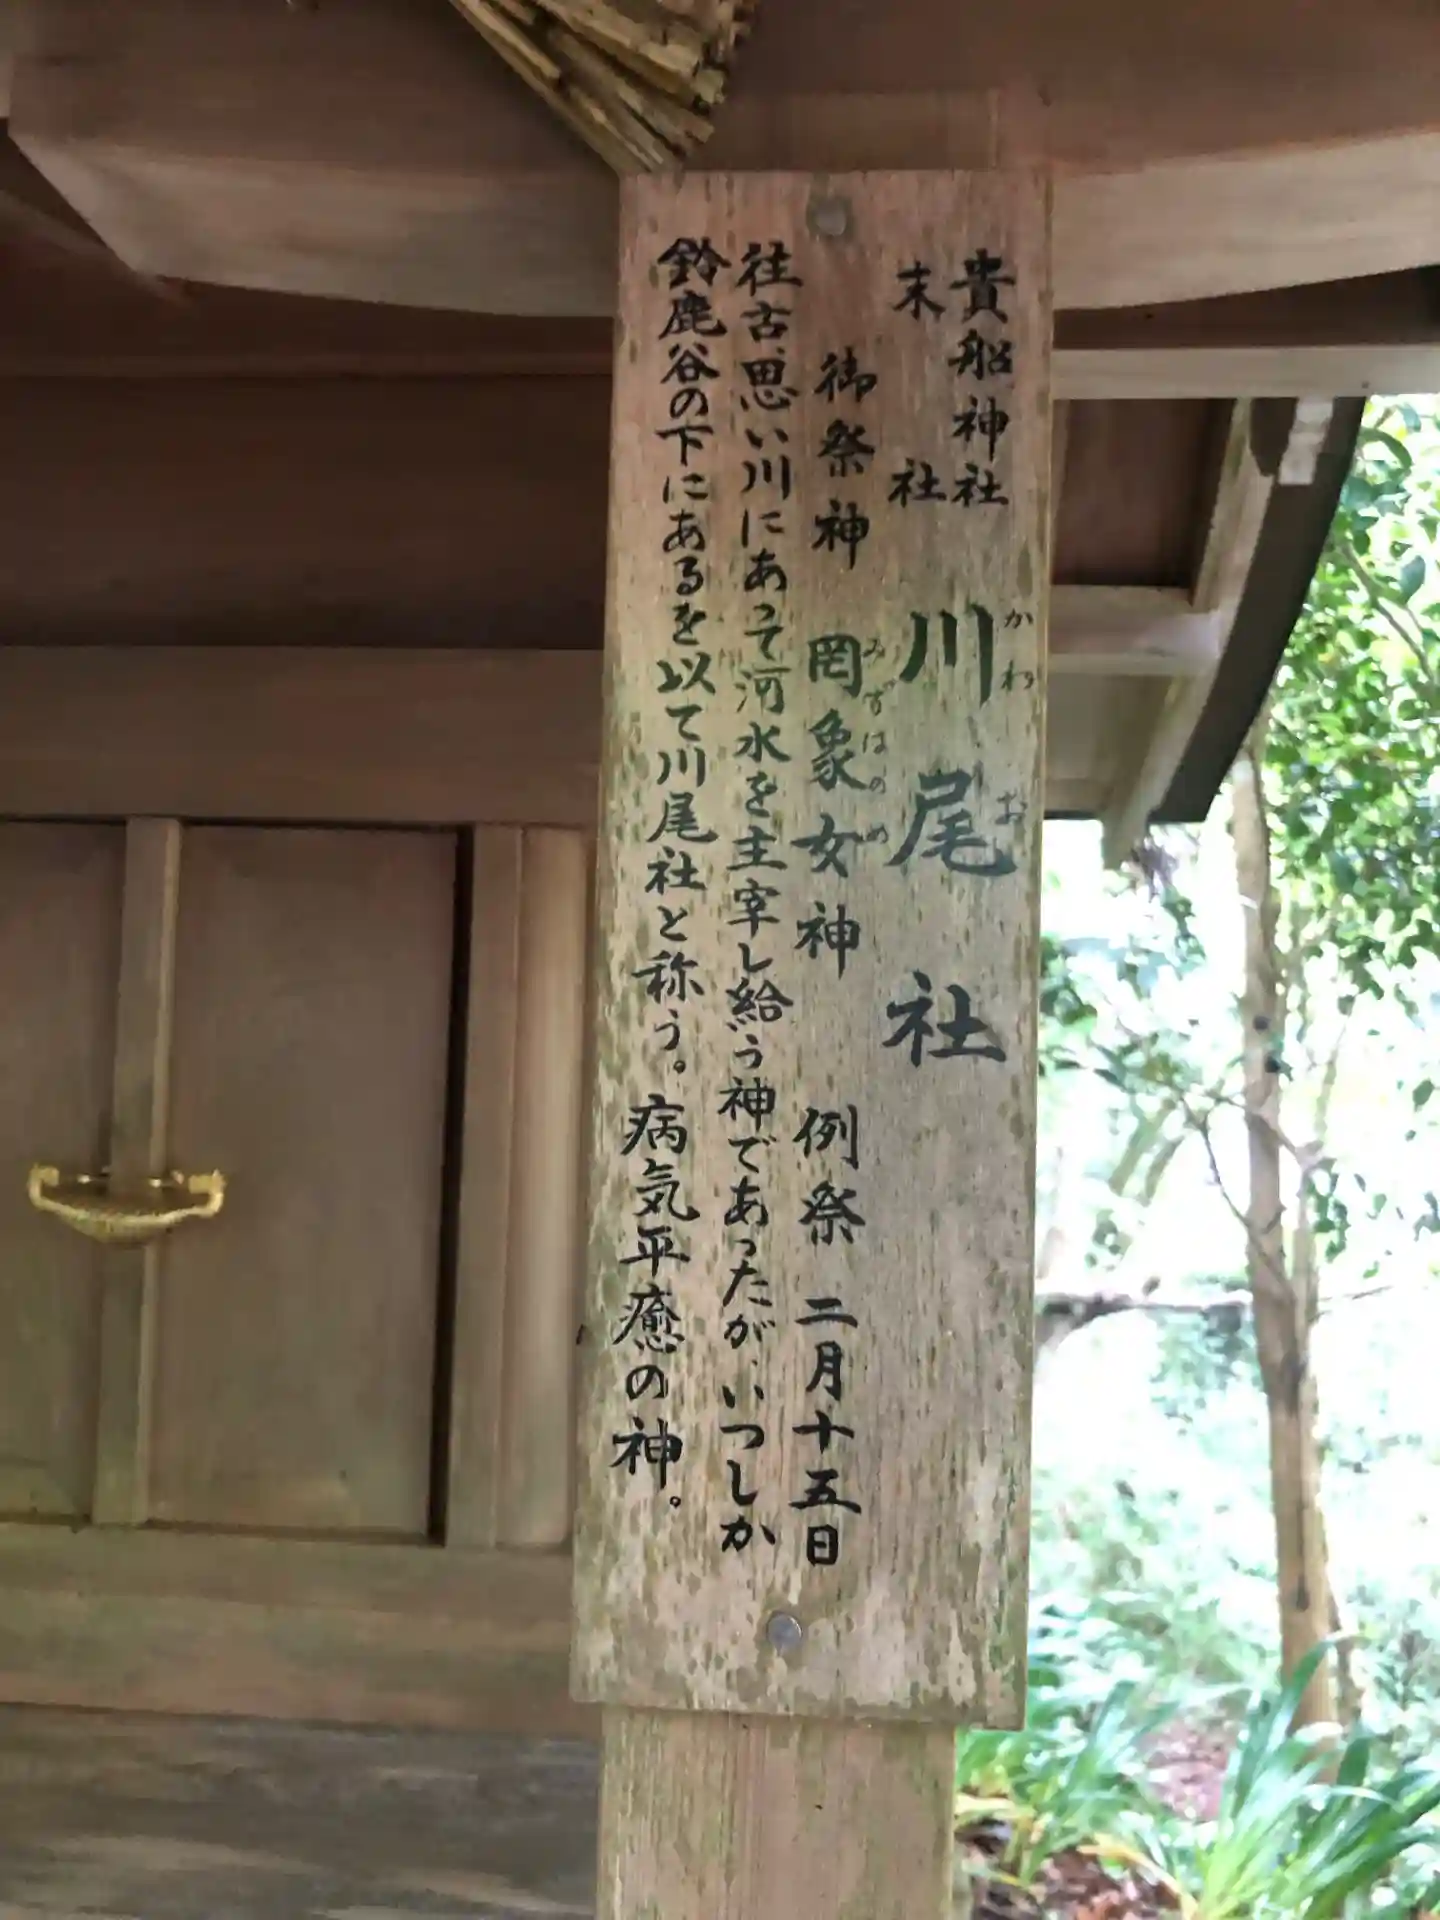 貴船神社
末社
川尾社
かわ お
御祭神 罔象女神 例祭 二月十五日
みずはのめ
往古、思い川にあって河水を主宰し給う神であったが、いつしか
鈴鹿谷の下にあるを以て川尾社と称う。病気平癒の神。